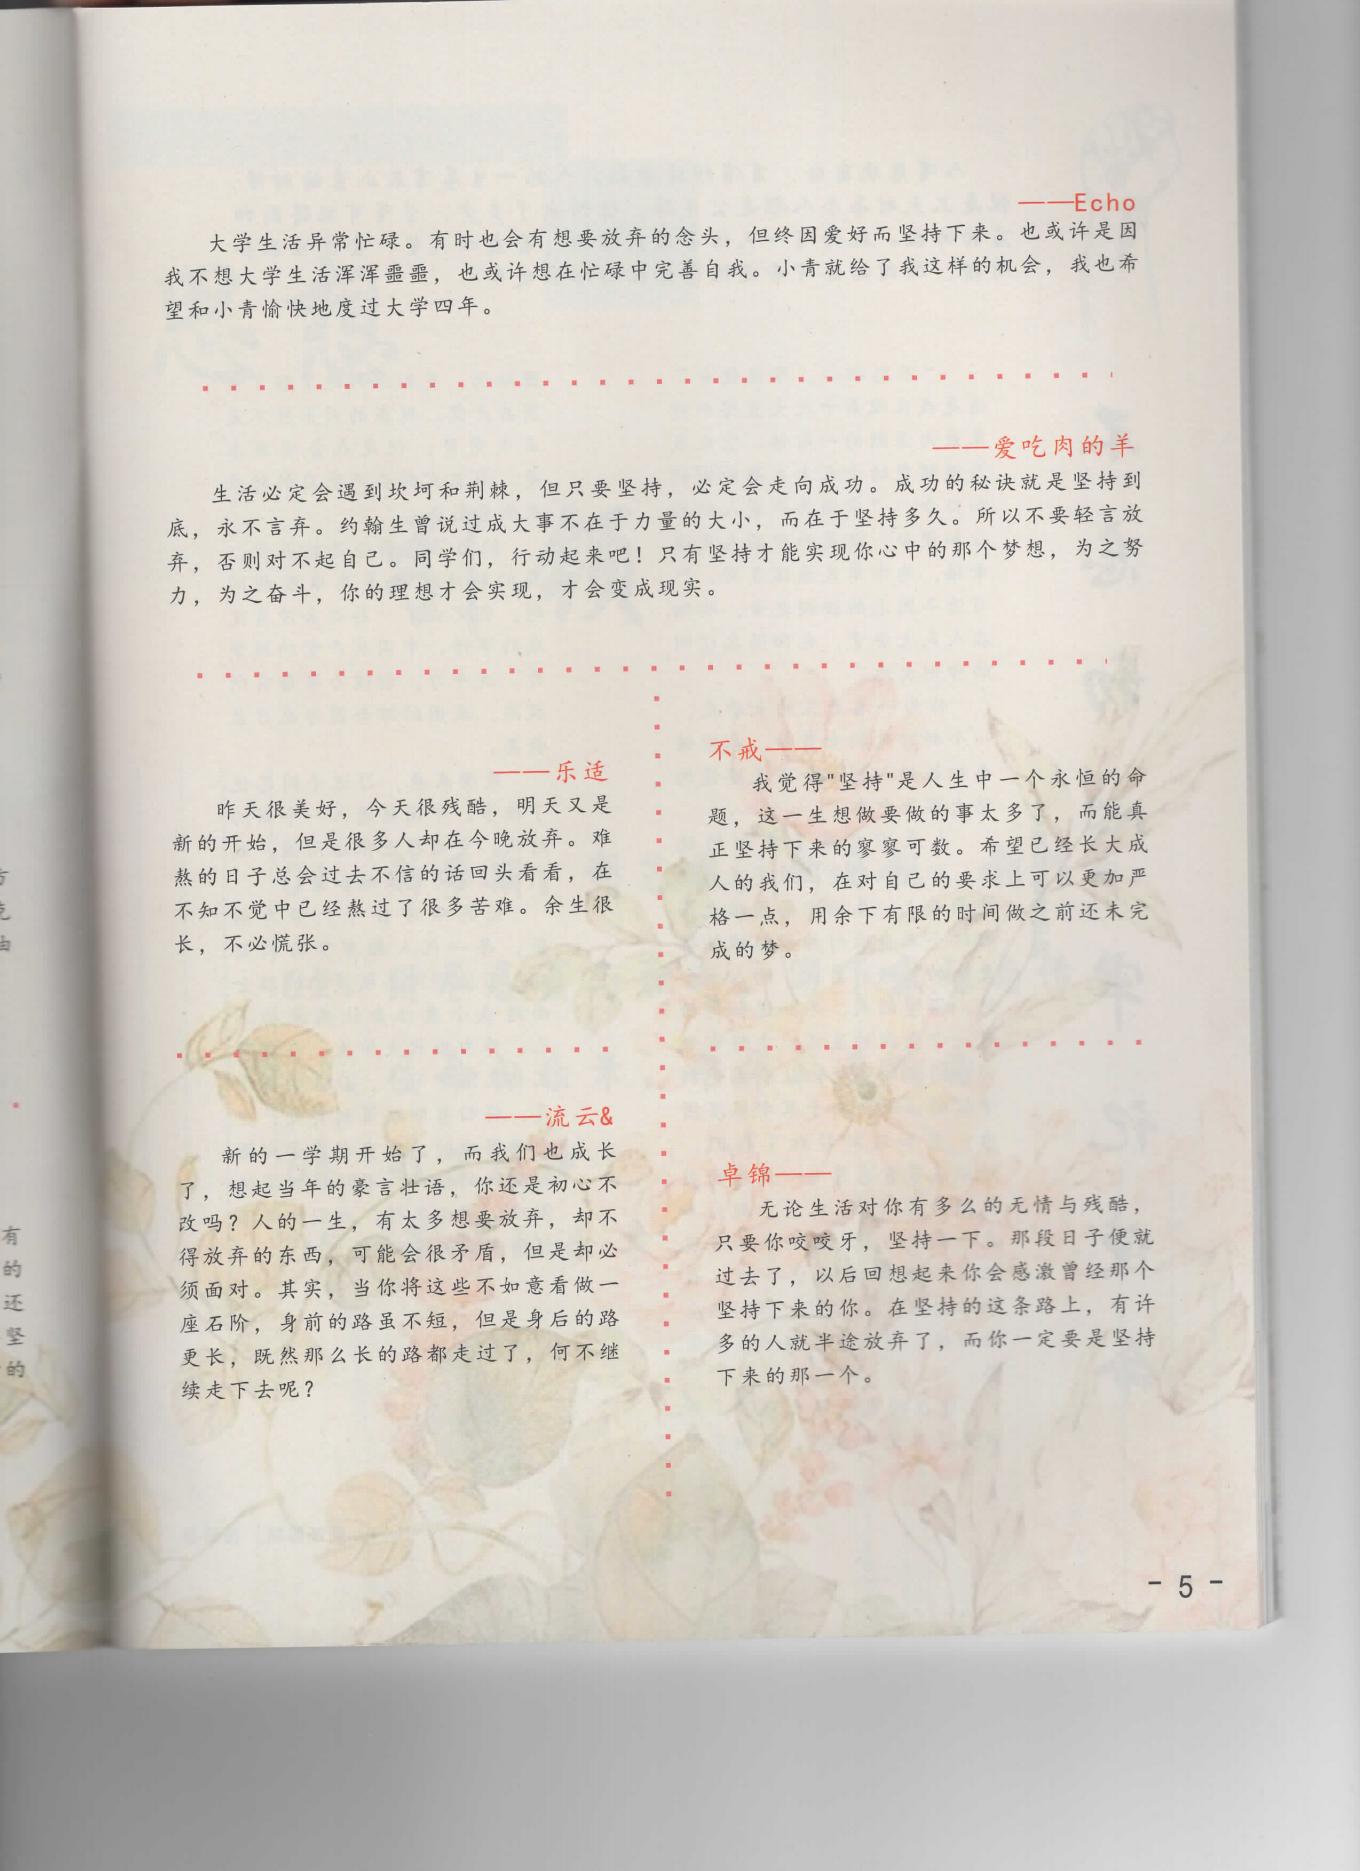 ——Echo
大学生活异常忙碌。有时也会有想要放弃的念头，但终因爱好而坚持下来。也或许是因
我不想大学生活浑浑噩噩，也或许想在忙碌中完善自我。小青就给了我这样的机会，我也希
望和小青愉快地度过大学四年。
——爱吃肉的羊
生活必定会遇到坎坷和荆棘，但只要坚持，必定会走向成功。成功的秘诀就是坚持到
底，永不言弃。约翰生曾说过成大事不在于力量的大小，而在于坚持多久。所以不要轻言放
弃，否则对不起自己。同学们，行动起来吧！只有坚持才能实现你心中的那个梦想，为之努
力，为之奋斗，你的理想才会实现，才会变成现实。
——乐适
昨天很美好，今天很残酷，明天又是
新的开始，但是很多人却在今晚放弃。难
熬的日子总会过去不信的话回头看看，在
不知不觉中已经熬过了很多苦难。余生很
长，不必慌张。
不戒——
我觉得"坚持"是人生中一个永恒的命
题，这一生想做要做的事太多了，而能真
正坚持下来的寥寥可数。希望已经长大成
人的我们，在对自己的要求上可以更加严
格一点，用余下有限的时间做之前还未完
成的梦。
——流云&
新的一学期开始了，而我们也成长
了，想起当年的豪言壮语，你还是初心不
改吗？人的一生，有太多想要放弃，却不
得放弃的东西，可能会很矛盾，但是却必
须面对。其实，当你将这些不如意看做一
座石阶，身前的路虽不短，但是身后的路
更长，既然那么长的路都走过了，何不继
续走下去呢？
卓锦——
无论生活对你有多么的无情与残酷，
只要你咬咬牙，坚持一下。那段日子便就
过去了，以后回想起来你会感激曾经那个
坚持下来的你。在坚持的这条路上，有许
多的人就半途放弃了，而你一定要是坚持
下来的那一个。
有
的
还
坚
的
- 5 -